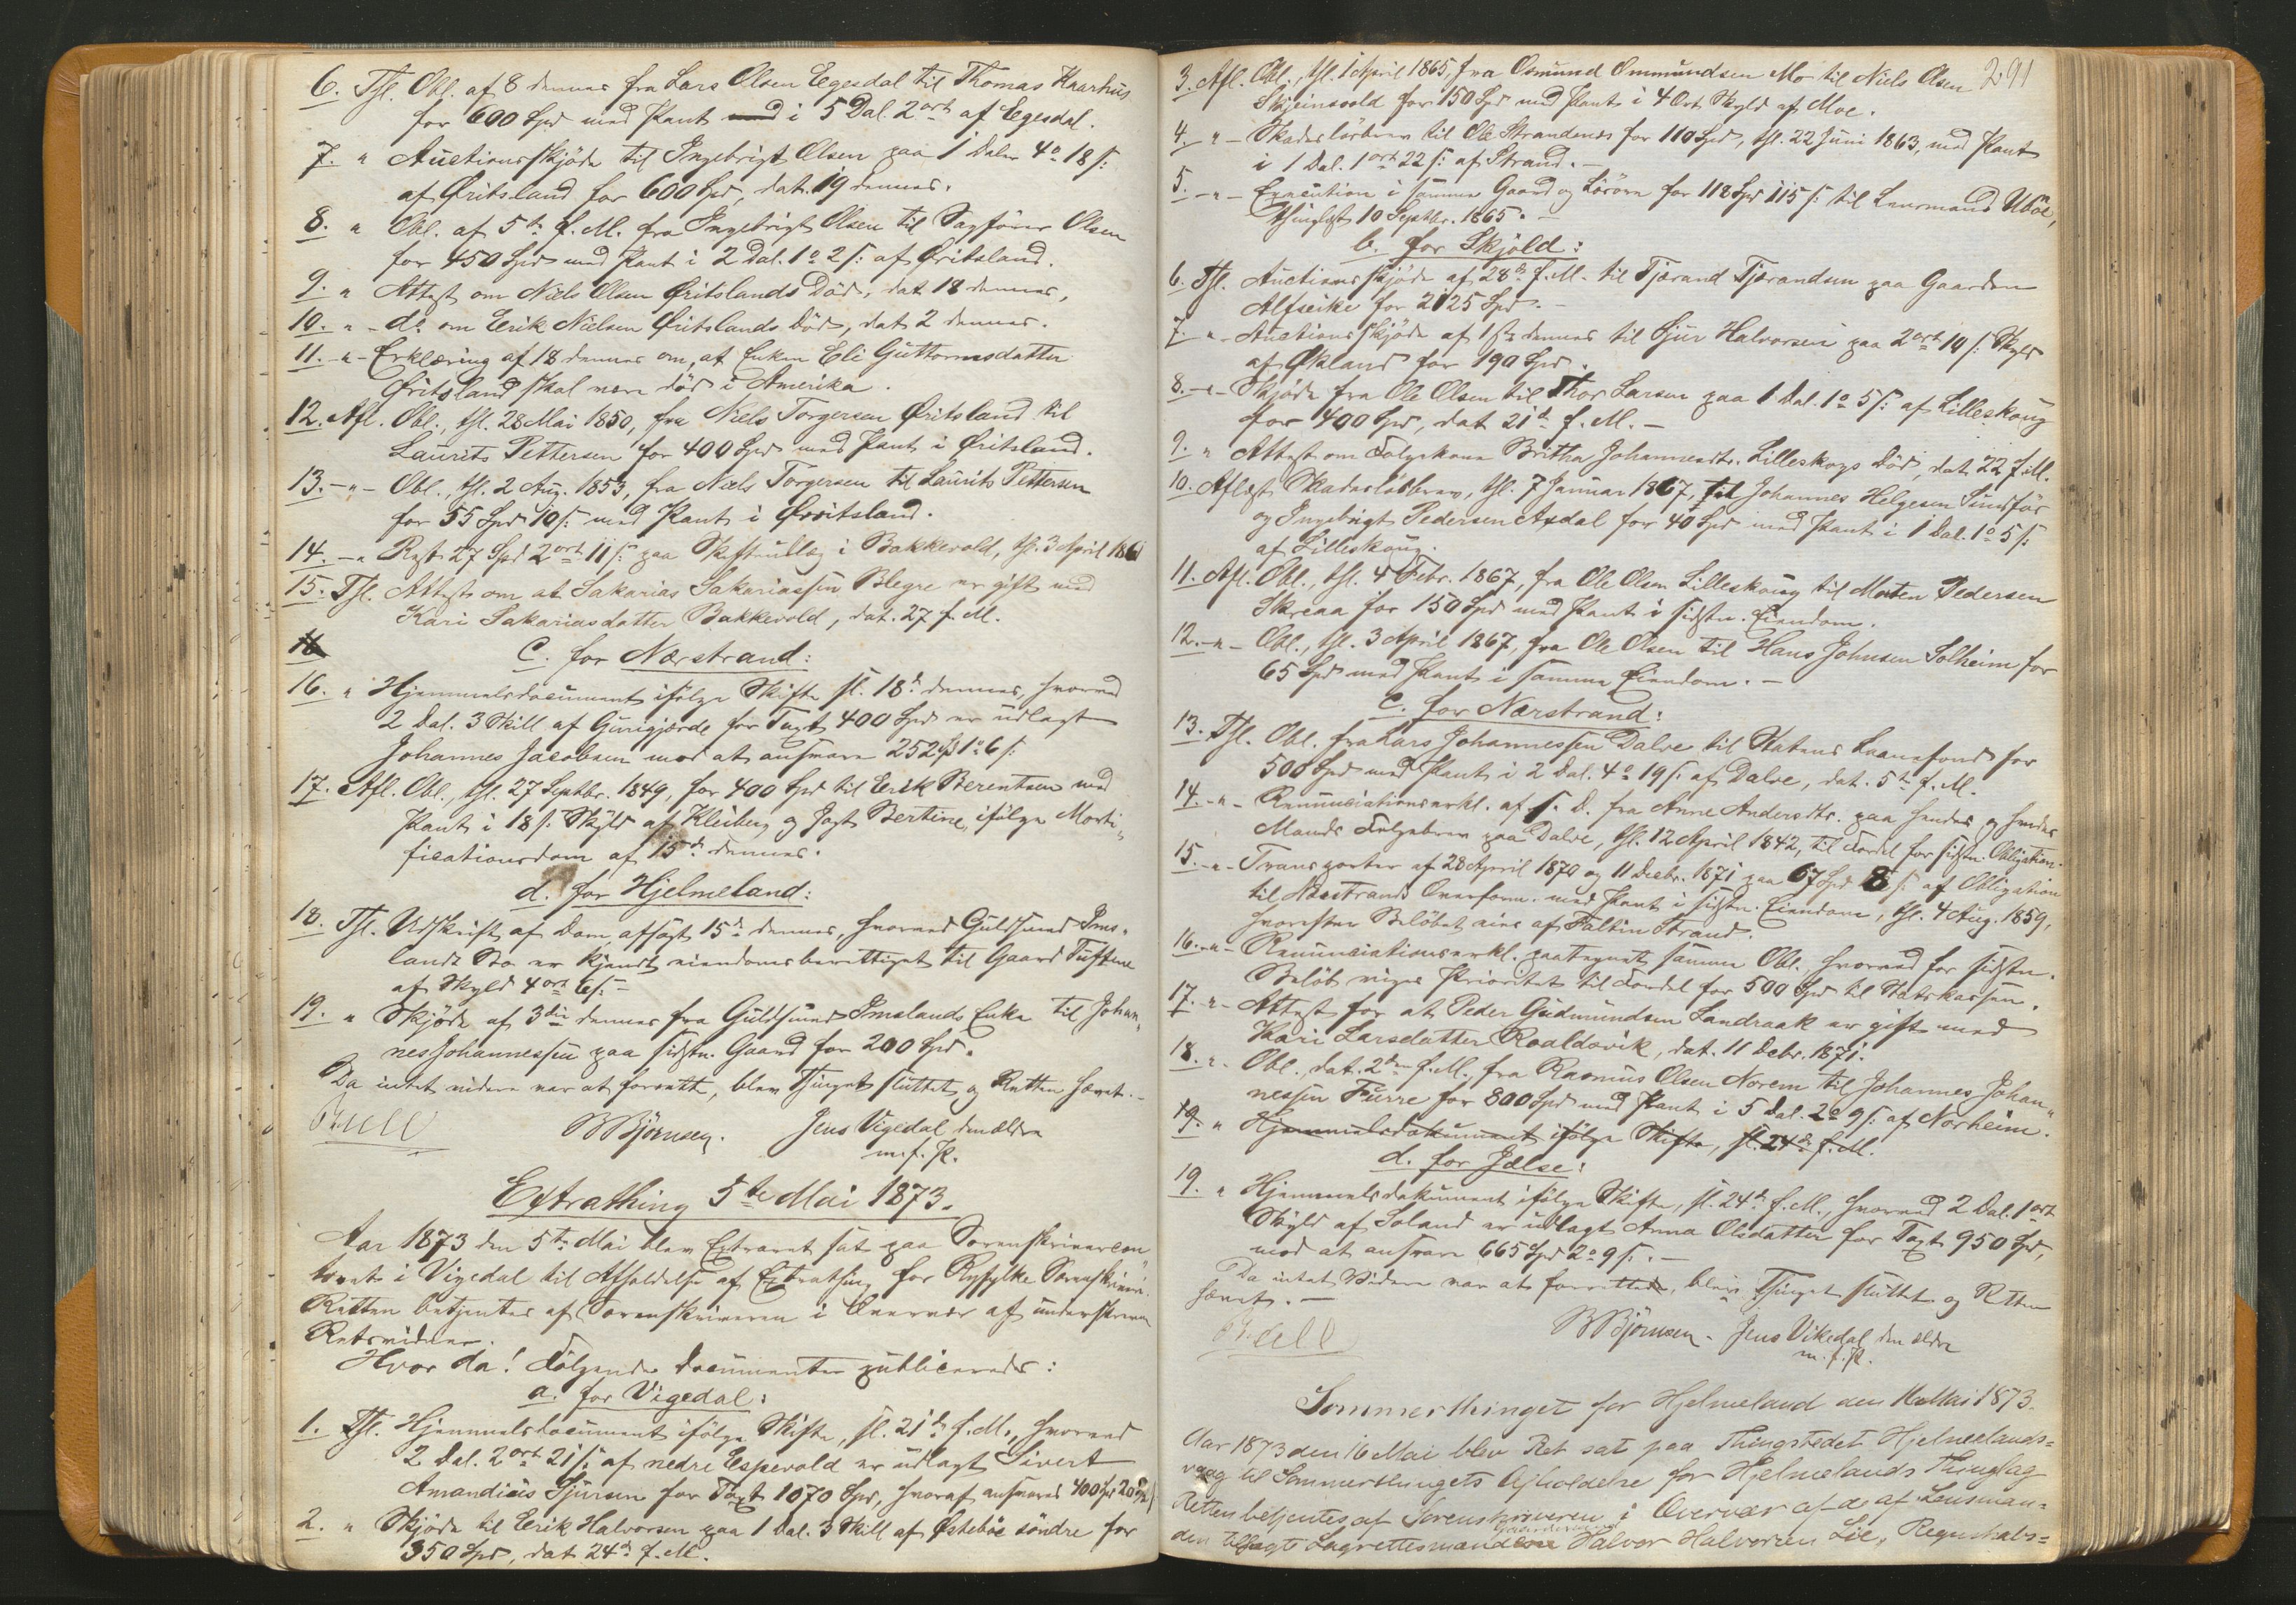 6. Thl. Obl. af 8 dennes fra Lars Olsen Egesdal til Thomas Kaarhus
for 600 Spd med Pant med i 5 Dal. 2 ort af Egesdal.
7. " Auctionsskjöde til Ingebrigt Olsen paa 1 Daler 4 o 18 s:
af Öritsland for 600 Spd, dat. 19 dennes.
8. " Obl. af 5te f. M. fra Ingebrigt Olsen til Sagförer Olsen
for 450 Spd med Pant i 2 Dal. 1 o 2 s: af Öritsland.
9. " Attest om Niels Olsen Öritslands Död, dat 18 dennes,
10. " - do om Erik Nielsen Öritslands Död, dat 2 dennes.
11. - " - Erklæring af 18 dennes om, at Enken Eli Guttormsdatter
Öritsland skal være död i Amerika.
12. Afl. Obl., thl. 28 Mai 1850, fra Niels Torgersen Öritsland til
Laurits Pettersen for 400 Spd med Pant i Öritsland.
13. - " - Obl., thl. 2 Aug. 1853, fra Niels Torgersen til Laurits Pettersen
for 55 Spd 10 s: med Pant i Öritsland.
14. - " Rest 27 Spd 2 ort 11 s: paa Skifteudlæg i Bakkevold, thl. 3 April 1861
15. Thl. Attest om at Sakarias Sakariassen Blegre er gift med
Kari Sakariasdatter Bakkevold, dat. 27 f. M.
16
C. for Nærstrand:
16. " Hjemmelsdocument ifölge Skifte sl. 18de dennes, hvorved
2 Dal. 3 Skill af Gunigjerde for Taxt 400 Spd er udlagt
Johannes Jacobsen mod at ansvare 252 Sp 1 o 6 s:
17. Afl. Obl., thl. 27 Septbr. 1849, for 400 Spd til Erik Berentsen med
Pant i 18 s: Skyld af Kleiberg og Jagt Bertine, ifölge Morti-
ficationsdom af 15de dennes.
d. for Hjelmeland:
18. Thl. Udskrift af Dom, afsagt 15de dennes, hvorved Guldsmed Ims-
lands Bo er kjendt eiendomsberettiget til Gaard Tuftene
af Skyld 4 ort 6 s: -
19. " Skjöde af 3die dennes fra Guldsmed Imslands Enke til Johan-
nes Johannessen paa sidstn. Gaard for 200 Spd.
Da intet videre var at forrette, blev Thinget sluttet og Retten hævet. -
Bull
B Björnsen. Jens Vigedal den ældre
m. f. P.
Extrathing 5te Mai 1873.
Aar 1873 den 5te Mai blev Extraret sat paa Sorenskrivercon-
toret i Vigedal til Afholdelse af Extrathing for Ryfylke Sorenskriveri.
Retten betjentes af Sorenskriveren i Overvær af underskrevne
Retsvidner.
Hvor da! Fölgende Documenter publiceredes:
a. for Vigedal:
1. Thl. Hjemmelsdocument ifölge Skifte, sl. 21de f. M., hvorved
2 Dal. 2 ort 21 s: af nedre Espevold er udlagt Sivert
Amandius Sjursen for Taxt 1070 Spd, hvoraf ansvares 400 Spd
2. " Skjöde til Erik Halvorsen paa 1 Dal. 3 Skill af Östeböe söndre for
350 Spd, dat 24de f. M.
291
3. Afl. Obl., thl. 1 April 1865, fra Osmund Ommundsen Mo til Niels Olsen
Skjeinsvold for 150 Spd med Pant i 4 Ort Skyld af Moe.
4. " - Skadeslösbrev til Ole Strandenes for 110 Spd, thl. 22 Juni 1863, med Pant
i 1 Dal. 1 ort 22 s: af Strand. -
5. - " - Execution i samme Gaard og Lösöre for 118 Spd 115 s: til Lensmand Uböe,
thinglyst 10 Septbr. 1865. -
b. for Skjold:
6. Thl. Auctionsskjöde af 28de f. M. til Tjerand Tjerandsen paa Gaarden
Alfseike for 2125 Spd. -
7. " - Auctionsskjöde af 1ste dennes til Sjur Halvorsen paa 2 ort 19 s: Skyld
af Ökland for 190 Spd.
8. - " - Skjöde fra Ole Olsen til Thor Larsen paa 1 Dal. 1 o 5 s: af Lilleskoug
for 400 Spd, dat 21de f. M. -
9. " Attest om Folgekone Britha Johannesdtr. Lilleskogs Död, dat 22 f. M.
10. Aflæst Skadeslösbrev, thl. 7 Januar 1867, til Johannes Helgesen Sundför
og Ingebrigt Pedersen Axdal for 40 Spd med Pant i 1 Dal. 1 o 5 s:
af Lilleskoug.
11. Afl. Obl., thl. 4 Febr. 1867, fra Ole Olsen Lilleskoug til Morten Pedersen
Skreaa for 150 Spd med Pant i sidstn. Eiendom.
12. - " - Obl., thl. 3 April 1867, fra Ole Olsen til Hans Johnsen Solheim for
65 Spd med Pant i samme Eiendom. -
C. for Nærstrand:
13. Thl. Obl. fra Lars Johannessen Dalve til Statens Laanefond for
500 Spd med Pant i 2 Dal. 4 o 19 s: af Dalve, dat. 5te f. M.
14. - " - Renunciationserkl. af s. D. fra Anne Andersdtr. paa hendes og hendes
Mands Folgebrev paa Dalve, thl. 12 April 1842, til Fordel for sidstn. Obligation.
15. - " - Transporter af 28 April 1870 og 11 Decbr. 1871 paa 67 Spd 8 s: af Obligation
til Nærstrands Overform. med Pant i sidstn. Eiendom, thl. 4 Aug. 1859,
hvorefter Belöbet eies af Faltin Strand.
16. - " - Renunciationserkl. paategnet samme Obl. hvorved for sidstn.
Belöb viges Prioritet til Fordel for 500 Spd til Statskassen.
17. - " - Attest for at Peder Gudmundsen Landraak er gift med
Kari Larsdatter Roaldsvik, dat. 11 Debr. 1871.
18. " - Obl., dat. 2den f. M., fra Rasmus Olsen Norem til Johannes Johan-
nessen Furre for 800 Spd med Pant i 5 Dal. 2 o 9 s: af Norheim.
19. " Hjemmelsdokument ifölge Skifte, sl. 24de f. M.
d. for Jelse:
19. " Hjemmelsdokument ifölge Skifte, sl. 24de f. M., hvorved 2 Dal. 1 ort
Skyld af Soland er udlagt Anna Olsdatter for Taxt 950 Spd,
mod at ansvare 665 Spd 2 o 9 s. -
Da intet Videre var at forrette, blev Thinget sluttet og Retten
hævet. -
Bull
B Björnsen - Jens Vikedal den ældre
m. f. P.
Sommerthinget for Hjelmeland den 16 Mai 1873.
Aar 1873 den 16 Mai blev Ret sat paa Thingstedet Hjelmelands=
vaag til Sommerthingets Afholdelse for Hjelmelands Thinglag
Retten betjentes af Sorenskriveren i Overvær af de af Lensman=
den tilsagte Lagrettesmænd Halvor Halvorsen Lie, Regnskabs=